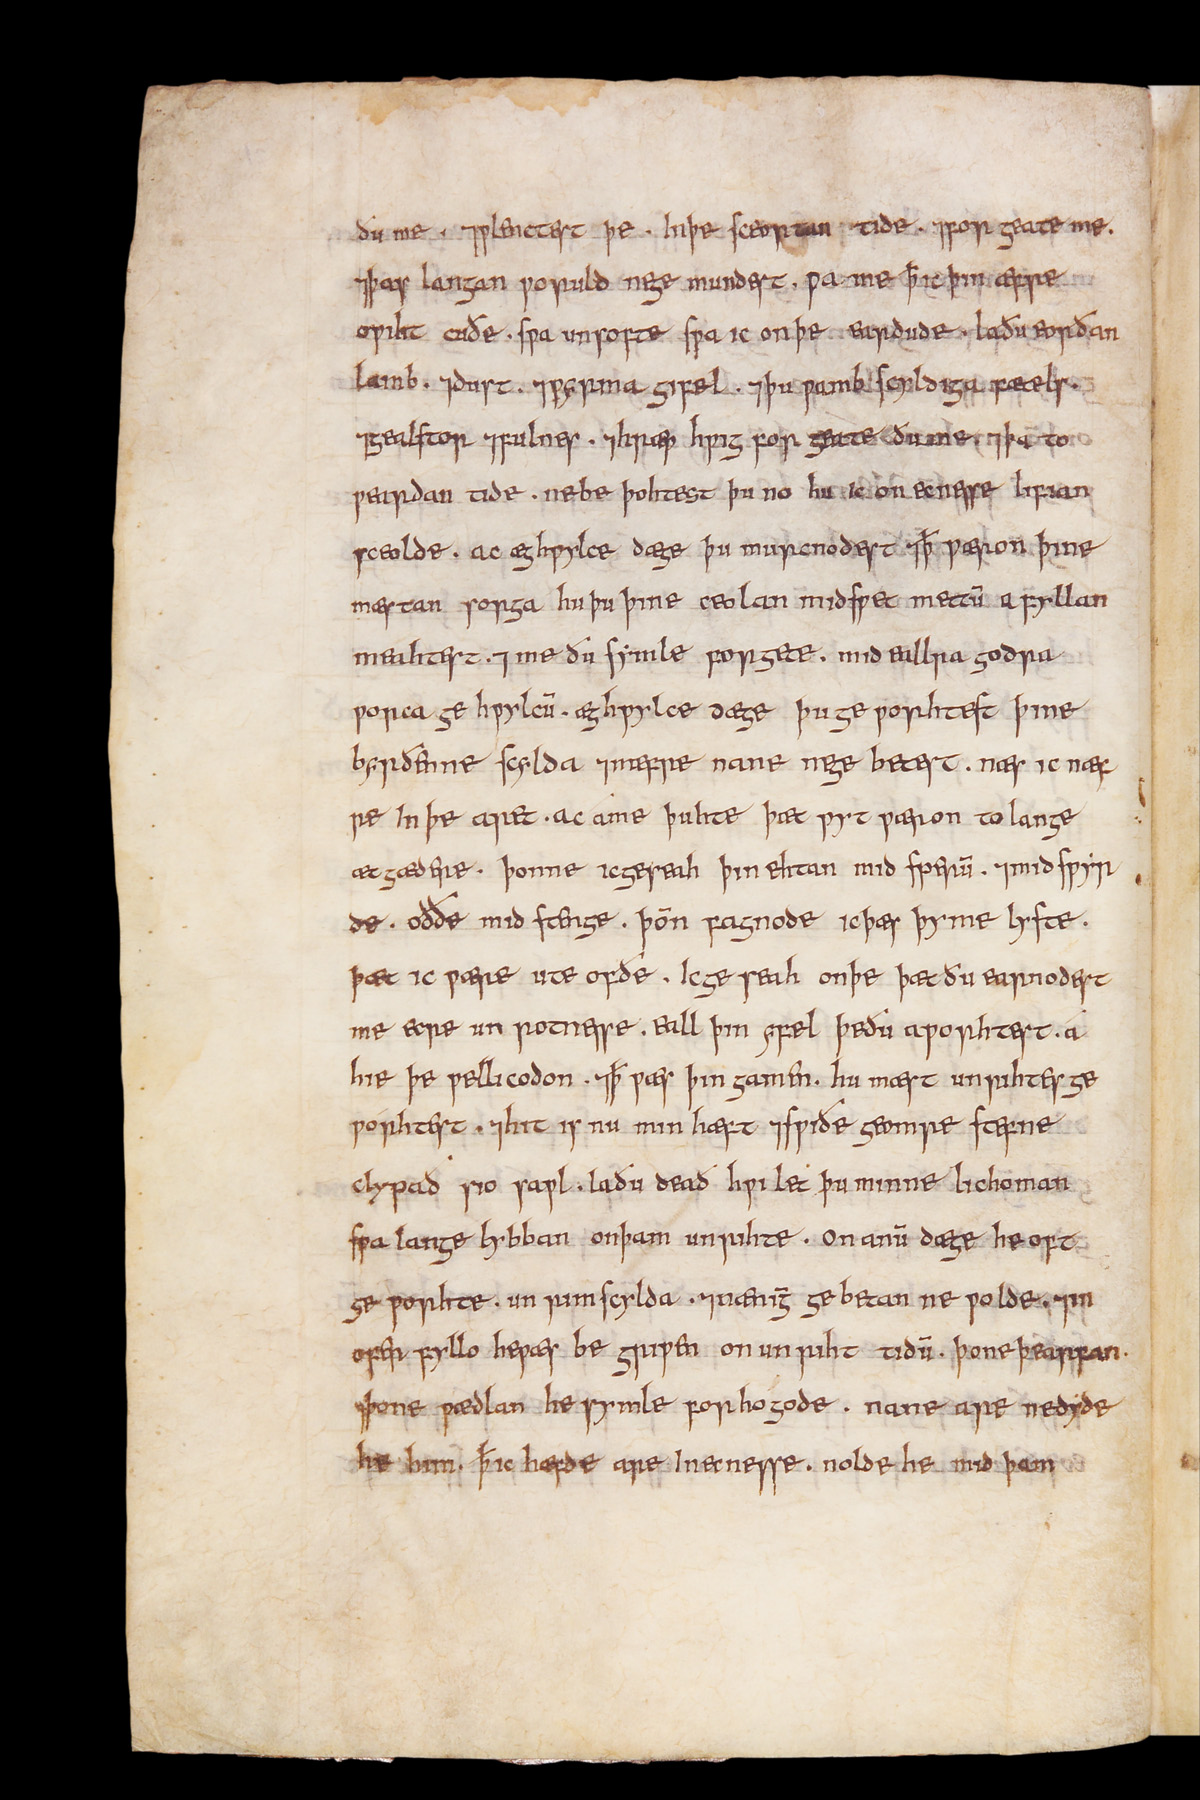 ðu me · ⁊ ƿlenctest þe · In þe sceortan tide · ⁊ forgeate me ·
⁊ þæs langan ƿoruld ne ge mundest · ƿa me þ̄ ic þin æfre
oƿiht cuðe · sƿa unsofte sƿa ic on þe eardude · la ðu eorðan
lamb · ⁊ dust · ⁊ ƿyrma gifel · ⁊ þu ƿamb scyldiga fætels ·
⁊ gealstor ⁊ fulnes · ⁊ hræƿ hƿig for geate ðu me · ⁊ þa to
ƿeardan tide · ne be þohtest þu no hu ic on ecnesse lifian
sceolde · ac æghƿylce dæge þu murcnodest ⁊ þ̄ ƿæron þine
mæstan sorga hu þu þine ceolan mid sƿet mettū a fyllan
meahtest · ⁊ me ðu symle forgete · mid eallra godra
ƿorca ge hƿylcū · æghƿylce dæge þu ge ƿorhtest þine
byrðenne scylda ⁊ næfre nane ne ge betest · næs ic næf
re In þe aret · ac a me þuhte þæt ƿyt ƿæron to lange
ætgædere · þonne ic geseah þin ehtan mid sƿerū · ⁊ mid sƿyr
de · oððe mid stenge · þōn fagnode ic þæs þy me lyste ·
þæt ic ƿære ute of ðe · Ic ge seah on þe þæt ðu earnodest
me ecre un rotnesse · eall þin sƿel þe ðu aƿorhtest · á
hie þe ƿell licodon · ⁊ þ̄ ƿæs þin gamen · hu mæst unrihtes ge
ƿorhtest · ⁊ hit is nu min hæft ⁊ sƿiðe geomre stefne
clypað sio saƿl · la ðu deað hƿi let þu minne lichoman
sƿa lange lybban on þam unrihte · On anū dæge he oft
ge ƿorhte · un rim scylda · ⁊ nænig̅ ge betan ne ƿolde · ⁊ in
ofer fyllo he ƿæs be gripen on unriht tidū · þone þearfan ·
⁊ þone ƿædlan he symle forhogode · nane are ne dyde
he him · þ̄ ic hæfde are In ecnesse · nolde he mid þam